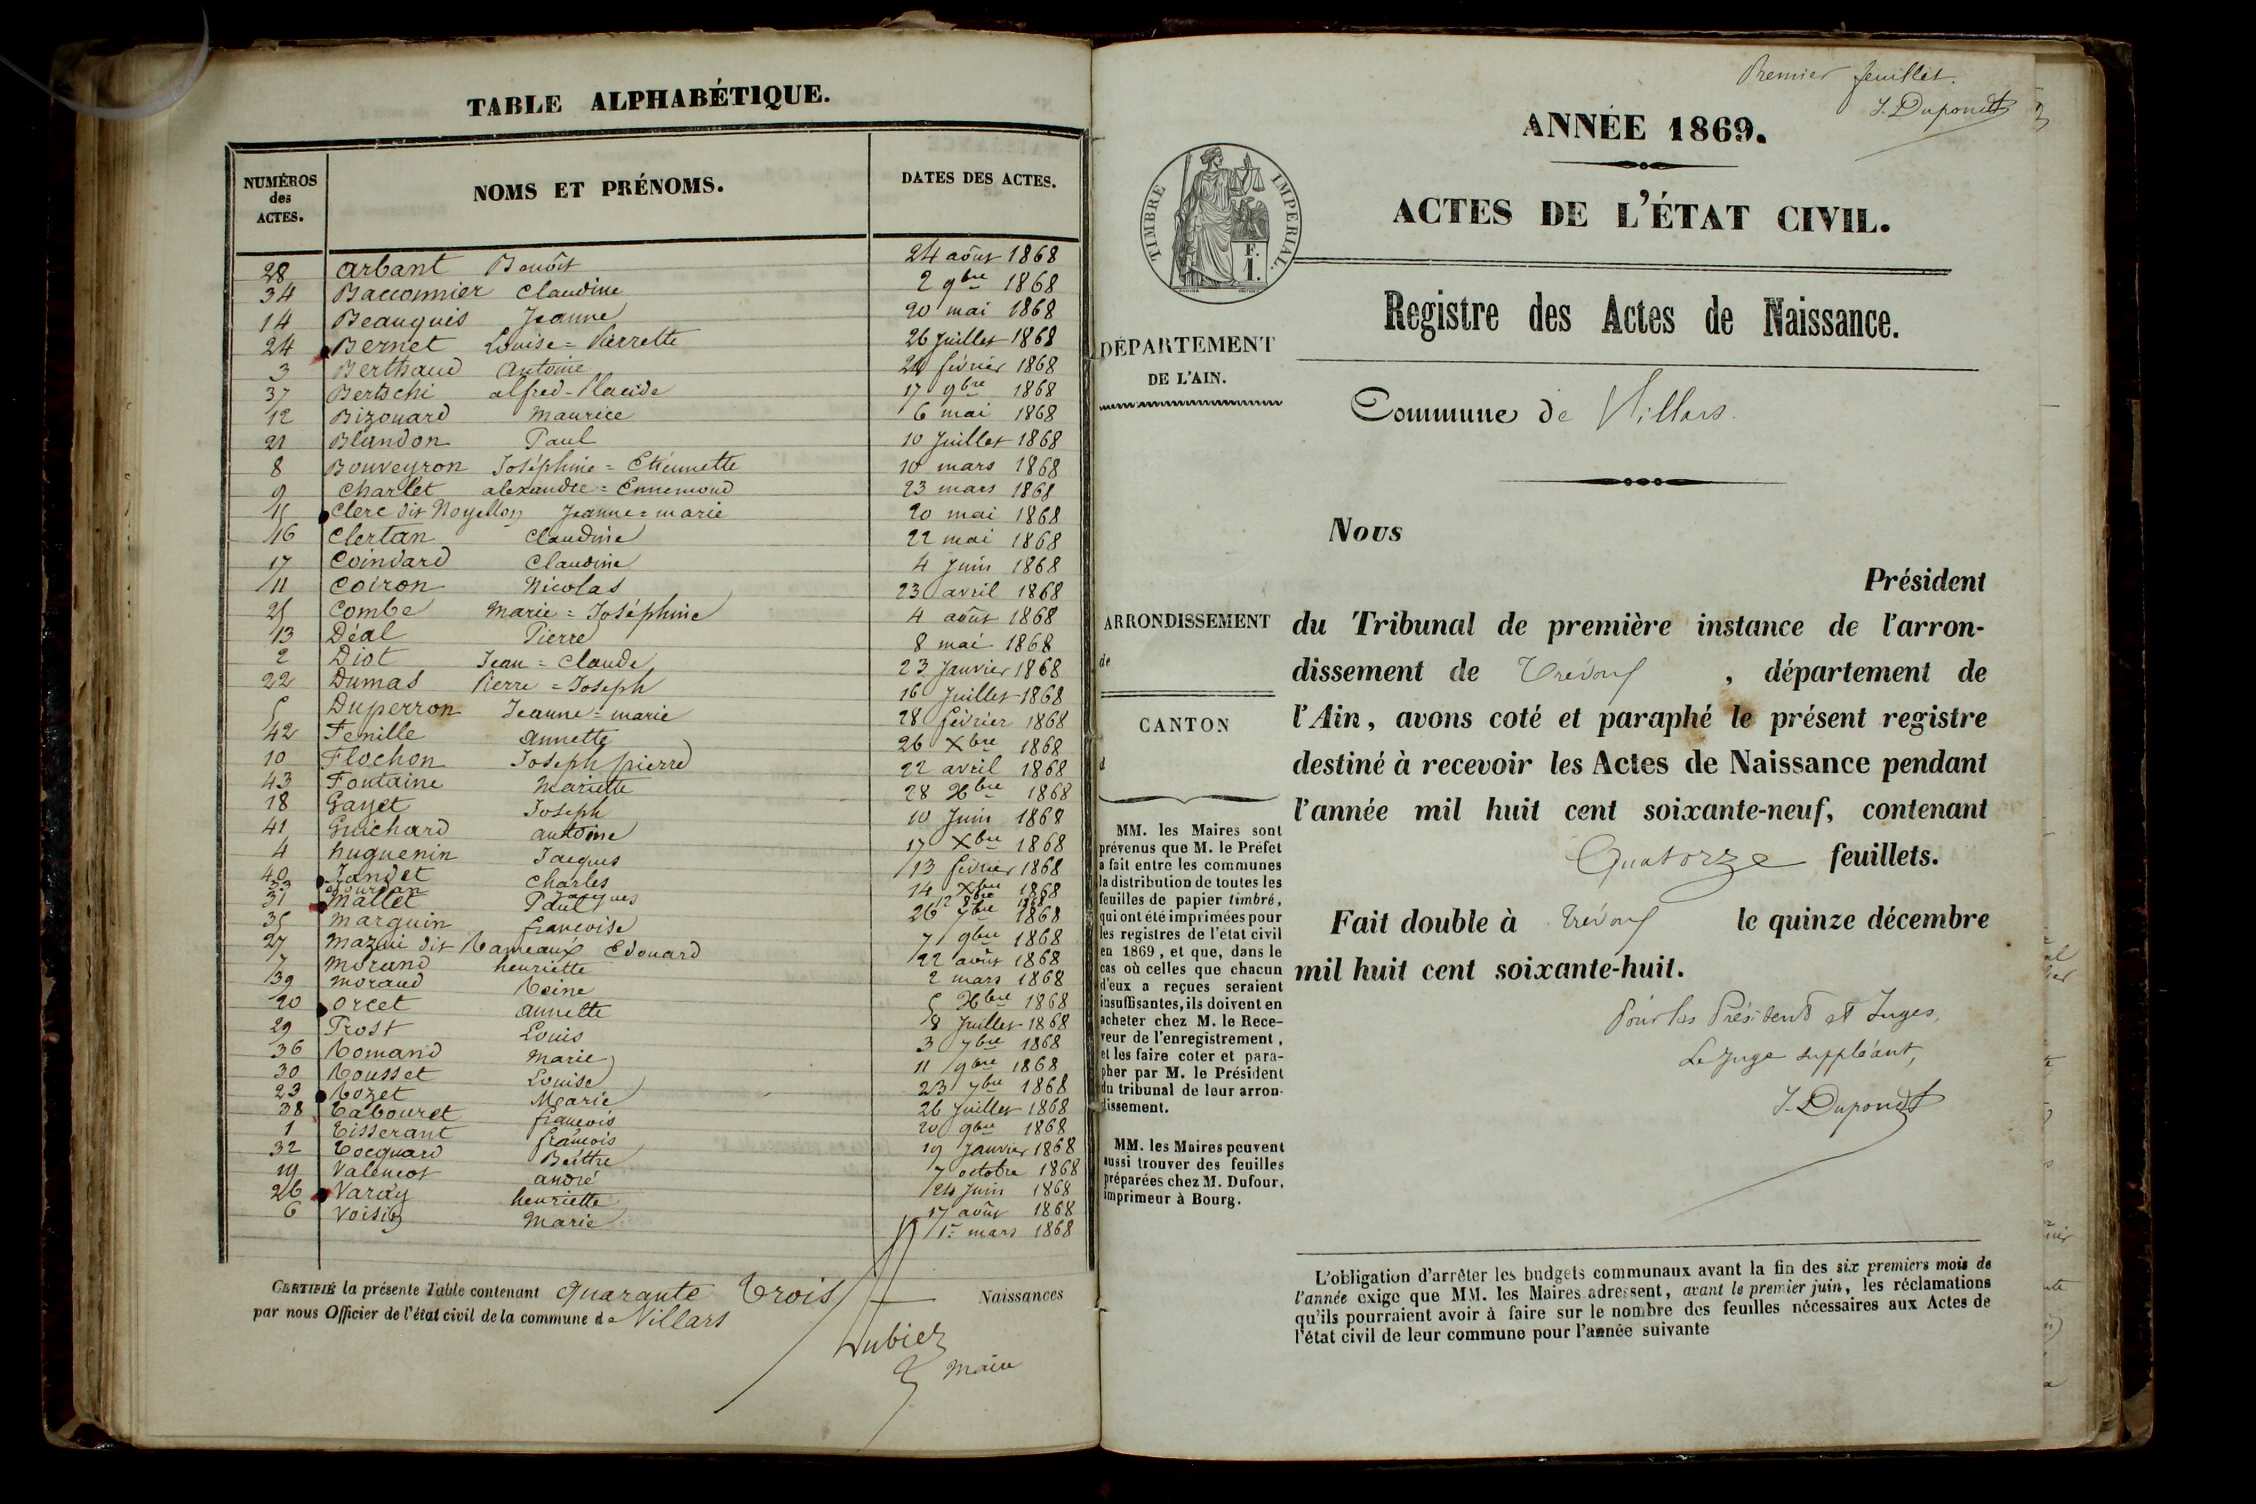 TABLE ALPHABÉTIQUE.
NUMÉROS des ACTES. NOMS ET PRÉNOMS. DATES DES ACTES.
28 Arbant Benoît 24 août 1868
34 Bacconnier Claudine 2 9bre 1868
14 Beauquis Jeanne 20 mai 1868
24 Bernet Louise = Pierrette 26 Juillet 1868
3 Berthaud Antoine février 1868
37 Bertschi alfred - Placide 17 9bre 1868
12 Bizouard Maurice 6 mai 1868
21 Blandon Paul 10 Juillet 1868
8 Bouveyron Joséphine = Etiennette 10 mars 1868
9 Charlet alexandre = Ennemond 23 mars 1868
15 Clerc dit Noyellon Jeanne = marie 20 mai 1868
16 Clertan Claudine 22 mai 1868
17 Coindard Claudine 4 Juin 1868
11 Coiron Nicolas 23 avril 1868
25 Combe Marie = Joséphine 4 août 1868
13 Déal Pierre 8 mai 1868
2 Diot Jean = Claude 23 Janvier 1868
22 Dumas Pierre = Joseph 16 Juillet 1868
5 Duperron Jeanne = marie 28 février 1868
42 Fenille annette 26 Xbre 1868
10 Flochon Joseph pierre 22 avril 1868
43 Fontaine Mariette 28 Xbre 1868
18 Gayet Joseph 10 Juin 1868
41 Guichard antoine 17 Xbre 1868
4 huguenin Jacques 13 février 1868
40 Jandet Charles 14 Xbre 1868
33 Jourdan Jacques 12 8bre 1868
31 Mallet Paul 26 7bre 1868
35 Marguin françoise 7 9bre 1868
27 Mazui dit Rameaux Edouard 22 août 1868
7 Morand henriette 2 mars 1868
39 Moraud Reine 5 Xbre 1868
20 Orcet annette 8 Juillet 1868
29 Prost Louis 3 7bre 1868
36 Romand Marie 11 9bre 1868
30 Rousset Louise 23 7bre 1868
23 Rozet Marie 26 Juillet 1868
38 Tabouret françois 20 9bre 1868
1 Tisserant françois 19 Janvier 1868
32 Tocquard Berthe 7 octobre 1868
19 Valencot andré 24 Juin 1868
26 Varay henriette 17 août 1868
6 Voisin Marie 1er mars 1868
CERTIFIÉ la présente Table contenant quarante Trois Naissances
par nous Officier de l'état civil de la commune de Villars
Dubiez
Maire
Premier feuillet.
J. Dupond
ANNÉE 1869.
ACTES DE L'ÉTAT CIVIL.
TIMBRE IMPÉRIAL.
F.
1.
Registre des Actes de Naissance.
DÉPARTEMENT
DE L'AIN.
Commune de Villars
ARRONDISSEMENT
de
CANTON
d
MM. les Maires sont
prévenus que M. le Préfet
a fait entre les communes
la distribution de toutes les
feuilles de papier timbré,
qui ont été imprimées pour
les registres de l'état civil
en 1869, et que, dans le
cas où celles que chacun
d'eux a reçues seraient
insuffisantes, ils doivent en
acheter chez M. le Rece-
veur de l'enregistrement,
et les faire coter et para-
pher par M. le Président
du tribunal de leur arron-
dissement.
MM. les Maires peuvent
aussi trouver des feuilles
préparées chez M. Dufour,
imprimeur à Bourg.
Nous
Président
du Tribunal de première instance de l'arron-
dissement de Trévoux, département de
l'Ain, avons coté et paraphé le présent registre
destiné à recevoir les Actes de Naissance pendant
l'année mil huit cent soixante-neuf, contenant
Quatorze feuillets.
Fait double à Trévoux le quinze décembre
mil huit cent soixante-huit.
Pour les Présidents et Juges,
Le Juge suppléant,
J. Dupond
L'obligation d'arrêter les budgets communaux avant la fin des six premiers mois de
l'année exige que MM. les Maires adressent, avant le premier juin, les réclamations
qu'ils pourraient avoir à faire sur le nombre des feuilles nécessaires aux Actes de
l'état civil de leur commune pour l'année suivante